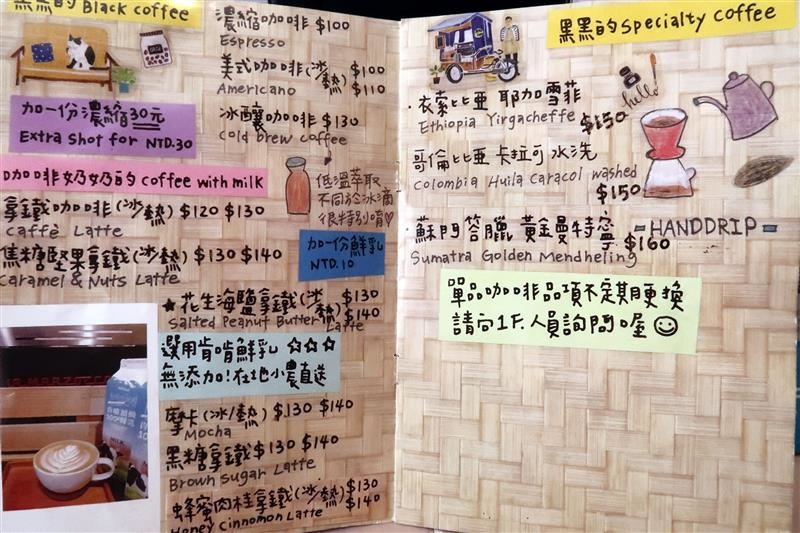 黑黑的Black coffee
濃縮咖啡 $100
Espresso
美式咖啡(冰熱) $100
Americano $110
冰釀咖啡 $130
Cold brew coffee
加一份濃縮30元
Extra Shot for NTD.30
低溫萃取
不同於冰滴
很特別唷♡
咖啡奶奶的 coffee with milk
拿鐵咖啡(冰熱) $120 $130
Caffè Latte
加一份鮮乳
NTD.10
焦糖堅果拿鐵(冰熱) $130 $140
Caramel & Nuts Latte
★花生海鹽拿鐵(冰熱) $130
Salted Peanut Butter Latte $140
選用肯啃鮮乳 ☆☆☆
無添加!在地小農直送
摩卡(冰/熱) $130 $140
Mocha
黑糖拿鐵 $130 $140
Brown Sugar Latte
蜂蜜肉桂拿鐵(冰熱) $130
Honey Cinnomon Latte $140
黑黑的Specialty coffee
hello!
·衣索比亞 耶加雪菲
Ethiopia Yirgacheffe $150
·哥倫比亞 卡拉可 水洗
Colombia Huila Caracol washed
$150
·蘇門答臘 黃金曼特寧 $160
Sumatra Golden Mendheling
HANDDRIP
單品咖啡品項不定期更換
請向1F.人員詢問喔☺